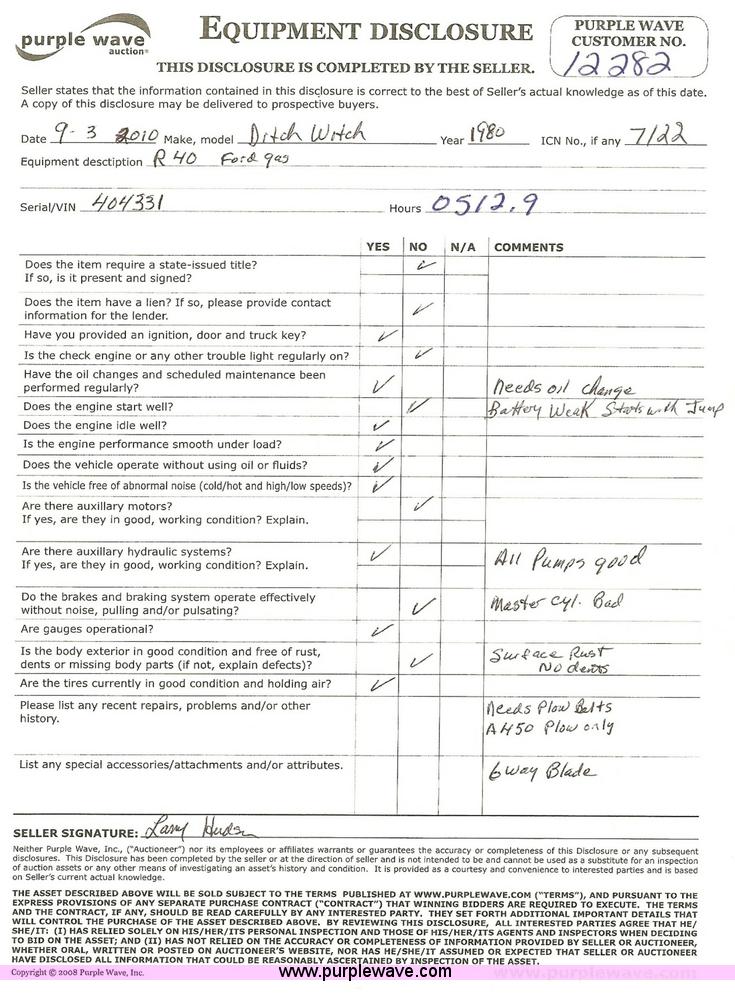 purple wave
auction®
EQUIPMENT DISCLOSURE
THIS DISCLOSURE IS COMPLETED BY THE SELLER.
PURPLE WAVE
CUSTOMER NO.
12282
Seller states that the information contained in this disclosure is correct to the best of Seller's actual knowledge as of this date.
A copy of this disclosure may be delivered to prospective buyers.
Date 9-3 2010 Make, model Ditch Witch Year 1980 ICN No., if any 7122
Equipment desctiption R 40 Ford gas
Serial/VIN 404331 Hours 0512.9
YES NO N/A COMMENTS
Does the item require a state-issued title? ✓
If so, is it present and signed?
Does the item have a lien? If so, please provide contact
information for the lender. ✓
Have you provided an ignition, door and truck key? ✓
Is the check engine or any other trouble light regularly on? ✓
Have the oil changes and scheduled maintenance been
performed regularly? ✓ Needs oil change
Does the engine start well? ✓ Battery Weak Starts with Jump
Does the engine idle well? ✓
Is the engine performance smooth under load? ✓
Does the vehicle operate without using oil or fluids? ✓
Is the vehicle free of abnormal noise (cold/hot and high/low speeds)? ✓
Are there auxillary motors? ✓
If yes, are they in good, working condition? Explain.
Are there auxillary hydraulic systems? ✓ All Pumps good
If yes, are they in good, working condition? Explain.
Do the brakes and braking system operate effectively
without noise, pulling and/or pulsating? ✓ Master Cyl. Bad
Are gauges operational? ✓
Is the body exterior in good condition and free of rust, Surface Rust
dents or missing body parts (if not, explain defects)? ✓ No dents
Are the tires currently in good condition and holding air? ✓
Please list any recent repairs, problems and/or other Needs Plow Belts
history. A450 Plow only
List any special accessories/attachments and/or attributes. 6 way Blade
SELLER SIGNATURE: Larry Hudson
Neither Purple Wave, Inc., ("Auctioneer") nor its employees or affiliates warrants or guarantees the accuracy or completeness of this Disclosure or any subsequent
disclosures. This Disclosure has been completed by the seller or at the direction of seller and is not intended to be and cannot be used as a substitute for an inspection
of auction assets or any other means of investigating an asset's history and condition. It is provided as a courtesy and convenience to interested parties and is based
on Seller's current actual knowledge.
THE ASSET DESCRIBED ABOVE WILL BE SOLD SUBJECT TO THE TERMS PUBLISHED AT WWW.PURPLEWAVE.COM ("TERMS"), AND PURSUANT TO THE
EXPRESS PROVISIONS OF ANY SEPARATE PURCHASE CONTRACT ("CONTRACT") THAT WINNING BIDDERS ARE REQUIRED TO EXECUTE. THE TERMS
AND THE CONTRACT, IF ANY, SHOULD BE READ CAREFULLY BY ANY INTERESTED PARTY. THEY SET FORTH ADDITIONAL IMPORTANT DETAILS THAT
WILL CONTROL THE PURCHASE OF THE ASSET DESCRIBED ABOVE. BY REVIEWING THIS DISCLOSURE, ALL INTERESTED PARTIES AGREE THAT HE/
SHE/IT: (I) HAS RELIED SOLELY ON HIS/HER/ITS PERSONAL INSPECTION AND THOSE OF HIS/HER/ITS AGENTS AND INSPECTORS WHEN DECIDING
TO BID ON THE ASSET; AND (II) HAS NOT RELIED ON THE ACCURACY OR COMPLETENESS OF INFORMATION PROVIDED BY SELLER OR AUCTIONEER,
WHETHER ORAL, WRITTEN OR POSTED ON AUCTIONEER'S WEBSITE, NOR HAS HE/SHE/IT ASSUMED OR EXPECTED THAT SELLER OR AUCTIONEER
HAVE DISCLOSED ALL INFORMATION THAT COULD BE REASONABLY ASCERTAINED BY INSPECTION OF THE ASSET.
Copyright © 2008 Purple Wave, Inc. www.purplewave.com